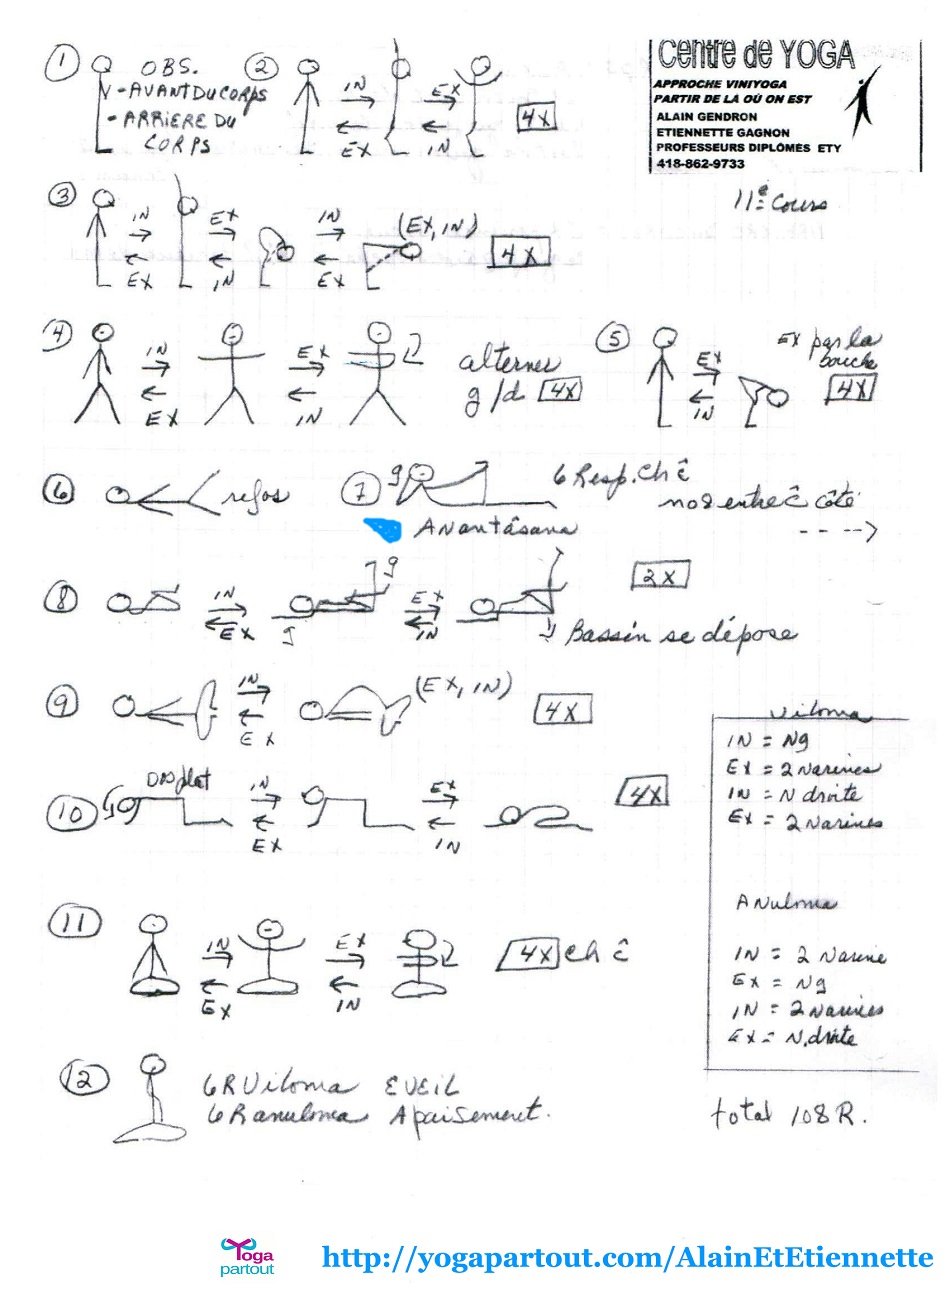 Centre de YOGA
APPROCHE VINIYOGA
PARTIR DE LÀ OÙ ON EST
ALAIN GENDRON
ETIENNETTE GAGNON
PROFESSEURS DIPLÔMÉS ETY
418-862-9733
11e Cours
1 OBS.
- AVANT DU CORPS
- ARRIERE DU
CORPS
2 IN EX
EX IN
4X
3 IN EX IN (EX, IN)
EX IN EX
4X
4 IN EX
EX IN
alternes
g/d 4X
5 EX
IN
EX par la
bouche
4X
6 repos
7 g 6 Resp. Ch ĉ
nos entre ĉ côté
Anantâsana
---->
8 IN g EX
EX g IN
2X
Bassin se dépose
9 IN (EX, IN)
EX
4X
10 Dos plat IN EX
EX IN
4X
11 IN EX
EX IN
4X Ch ĉ
12 6R Viloma EVEIL
6R anuloma Apaisement.
Viloma
IN = Ng
EX = 2 Narines
IN = N droite
EX = 2 Narines
Anuloma
IN = 2 Narine
EX = Ng
IN = 2 Narines
EX = N. droite
total 108 R.
Yoga
partout
http://yogapartout.com/AlainEtEtiennette